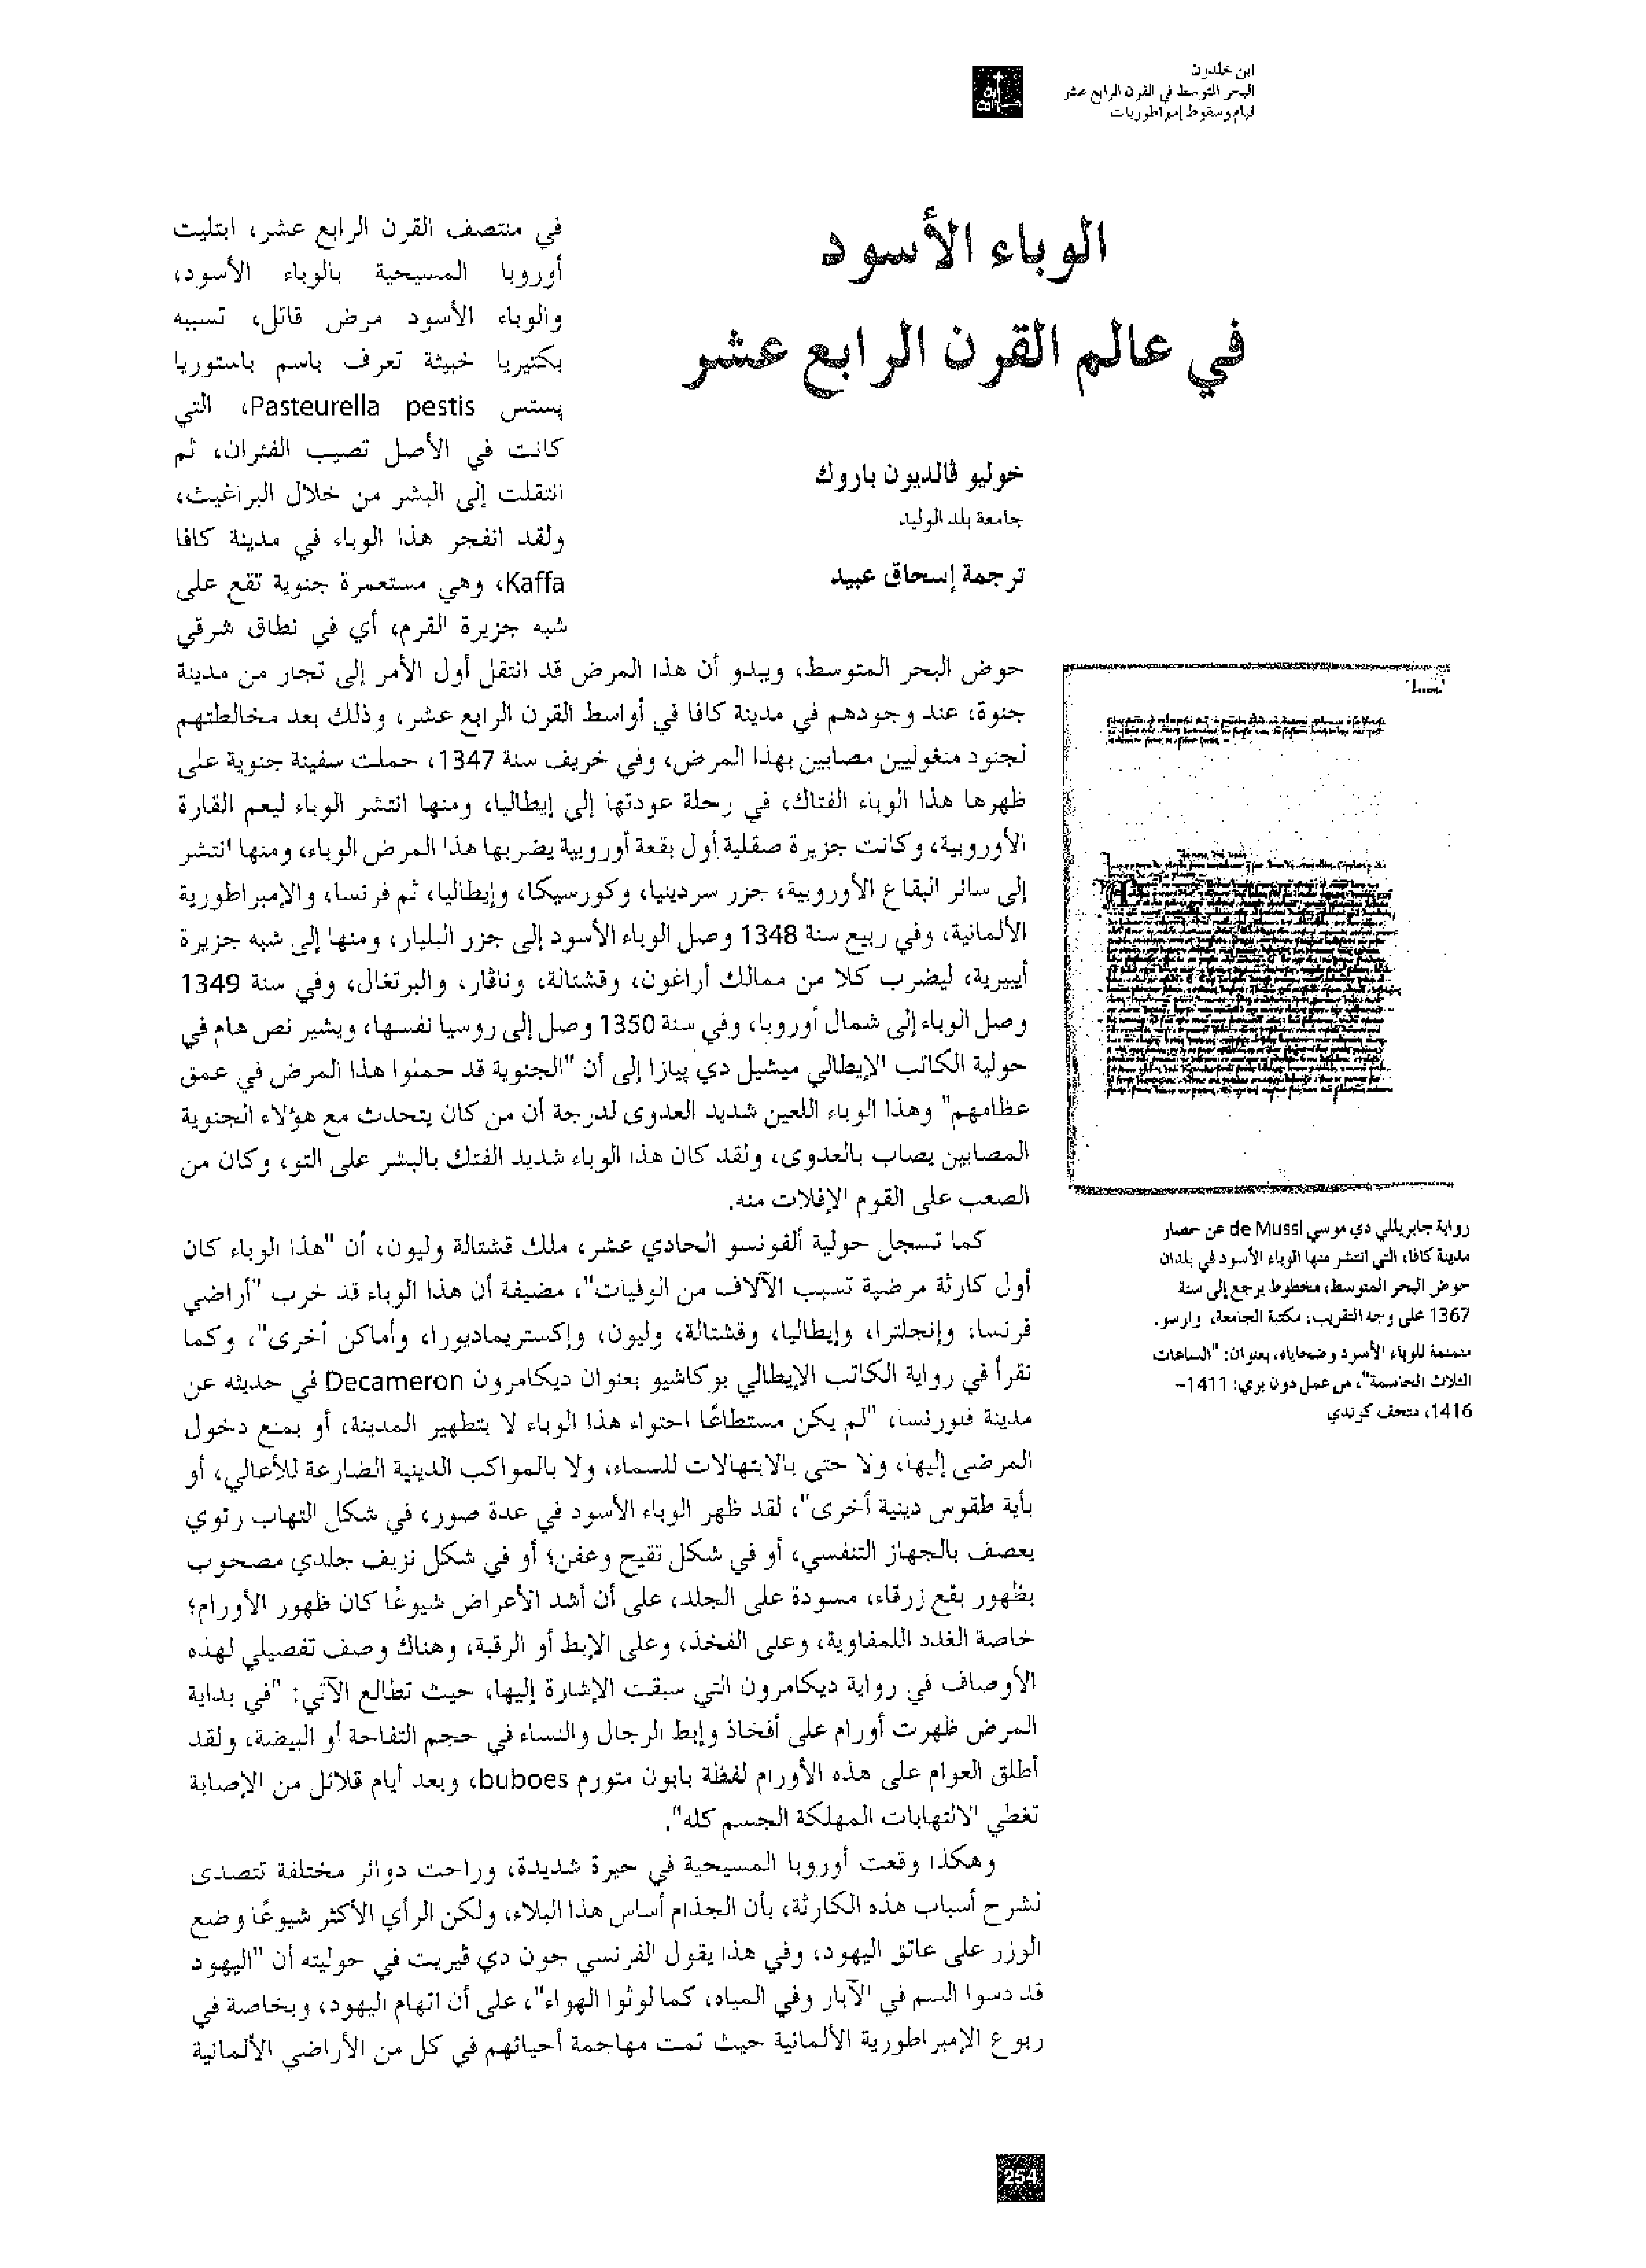 ابن خلدون
البحر المتوسط في القرن الرابع عشر
قيام وسقوط إمبراطوريات
الوباء الأسود
في عالم القرن الرابع عشر
خوليو ڤالديون باروك
جامعة بلد الوليد
ترجمة إسحاق عبيد
في منتصف القرن الرابع عشر، ابتليت
أوروبا المسيحية بالوباء الأسود،
والوباء الأسود مرض قاتل، تسببه
بكتيريا خبيثة تعرف باسم باستوريا
پستس Pasteurella pestis، التي
كانت في الأصل تصيب الفئران، ثم
انتقلت إلى البشر من خلال البراغيث،
ولقد انفجر هذا الوباء في مدينة كافا
Kaffa، وهي مستعمرة جنوية تقع على
شبه جزيرة القرم، أي في نطاق شرقي
حوض البحر المتوسط، ويبدو أن هذا المرض قد انتقل أول الأمر إلى تجار من مدينة
جنوة، عند وجودهم في مدينة كافا في أواسط القرن الرابع عشر، وذلك بعد مخالطتهم
لجنود منغوليين مصابين بهذا المرض، وفي خريف سنة 1347، حملت سفينة جنوية على
ظهرها هذا الوباء الفتاك، في رحلة عودتها إلى إيطاليا، ومنها انتشر الوباء ليعم القارة
الأوروبية، وكانت جزيرة صقلية أول بقعة أوروبية يضربها هذا المرض الوباء، ومنها انتشر
إلى سائر البقاع الأوروبية، جزر سردينيا، وكورسيكا، وإيطاليا، ثم فرنسا، والإمبراطورية
الألمانية، وفي ربيع سنة 1348 وصل الوباء الأسود إلى جزر البليار، ومنها إلى شبه جزيرة
أيبيرية، ليضرب كلا من ممالك أراغون، وقشتالة، وناڤار، والبرتغال، وفي سنة 1349
وصل الوباء إلى شمال أوروبا، وفي سنة 1350 وصل إلى روسيا نفسها، ويشير نص هام في
حولية الكاتب الإيطالي ميشيل دي پيازا إلى أن "الجنوية قد حملوا هذا المرض في عمق
عظامهم" وهذا الوباء اللعين شديد العدوى لدرجة أن من كان يتحدث مع هؤلاء الجنوية
المصابين يصاب بالعدوى، ولقد كان هذا الوباء شديد الفتك بالبشر على التو، وكان من
الصعب على القوم الإفلات منه.
كما تسجل حولية ألفونسو الحادي عشر، ملك قشتالة وليون، أن "هذا الوباء كان
أول كارثة مرضية تسبب الآلاف من الوفيات"، مضيفة أن هذا الوباء قد خرب "أراضي
فرنسا، وإنجلترا، وإيطاليا، وقشتالة، وليون، وإكستريماديورا، وأماكن أخرى"، وكما
نقرأ في رواية الكاتب الإيطالي بوكاشيو بعنوان ديكامرون Decameron في حديثه عن
مدينة فلورنسا، "لم يكن مستطاعًا احتواء هذا الوباء لا بتطهير المدينة، أو بمنع دخول
المرضى إليها، ولا حتى بالابتهالات للسماء، ولا بالمواكب الدينية الضارعة للأعالي، أو
بأية طقوس دينية أخرى"، لقد ظهر الوباء الأسود في عدة صور، في شكل التهاب رئوي
يعصف بالجهاز التنفسي، أو في شكل تقيح وعفن؛ أو في شكل نزيف جلدي مصحوب
بظهور بقع زرقاء، مسودة على الجلد، على أن أشد الأعراض شيوعًا كان ظهور الأورام؛
خاصة الغدد اللمفاوية، وعلى الفخذ، وعلى الإبط أو الرقبة، وهناك وصف تفصيلي لهذه
الأوصاف في رواية ديكامرون التي سبقت الإشارة إليها، حيث تطالع الآتي: "في بداية
المرض ظهرت أورام على أفخاذ وإبط الرجال والنساء في حجم التفاحة أو البيضة، ولقد
أطلق العوام على هذه الأورام لفظة بابون متورم buboes، وبعد أيام قلائل من الإصابة
تغطي الالتهابات المهلكة الجسم كله".
وهكذا وقعت أوروبا المسيحية في حيرة شديدة، وراحت دوائر مختلفة تتصدى
لشرح أسباب هذه الكارثة، بأن الجذام أساس هذا البلاء، ولكن الرأي الأكثر شيوعًا وضع
الوزر على عاتق اليهود، وفي هذا يقول الفرنسي جون دي ڤيريت في حوليته أن "اليهود
قد دسوا السم في الآبار وفي المياه، كما لوثوا الهواء"، على أن اتهام اليهود، وبخاصة في
ربوع الإمبراطورية الألمانية حيث تمت مهاجمة أحيائهم في كل من الأراضي الألمانية
رواية جابرييللي دي موسي de Mussi عن حصار
مدينة كافا، التي انتشر منها الوباء الأسود في بلدان
حوض البحر المتوسط، مخطوط يرجع إلى سنة
1367 على وجه التقريب، مكتبة الجامعة، وارسو.
منمنمة للوباء الأسود وضحاياه، بعنوان: "الساعات
الثلاث الحاسمة"، من عمل دون بري: 1411-
1416، متحف كوندي
254